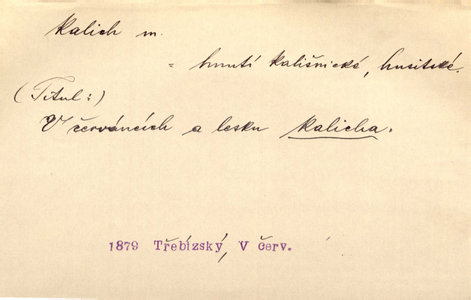 kalich m.
= hnutí kališnické, husitské.
(Titul:)
V červáncích a lesku kalicha.
1879 Třebízský, V červ.